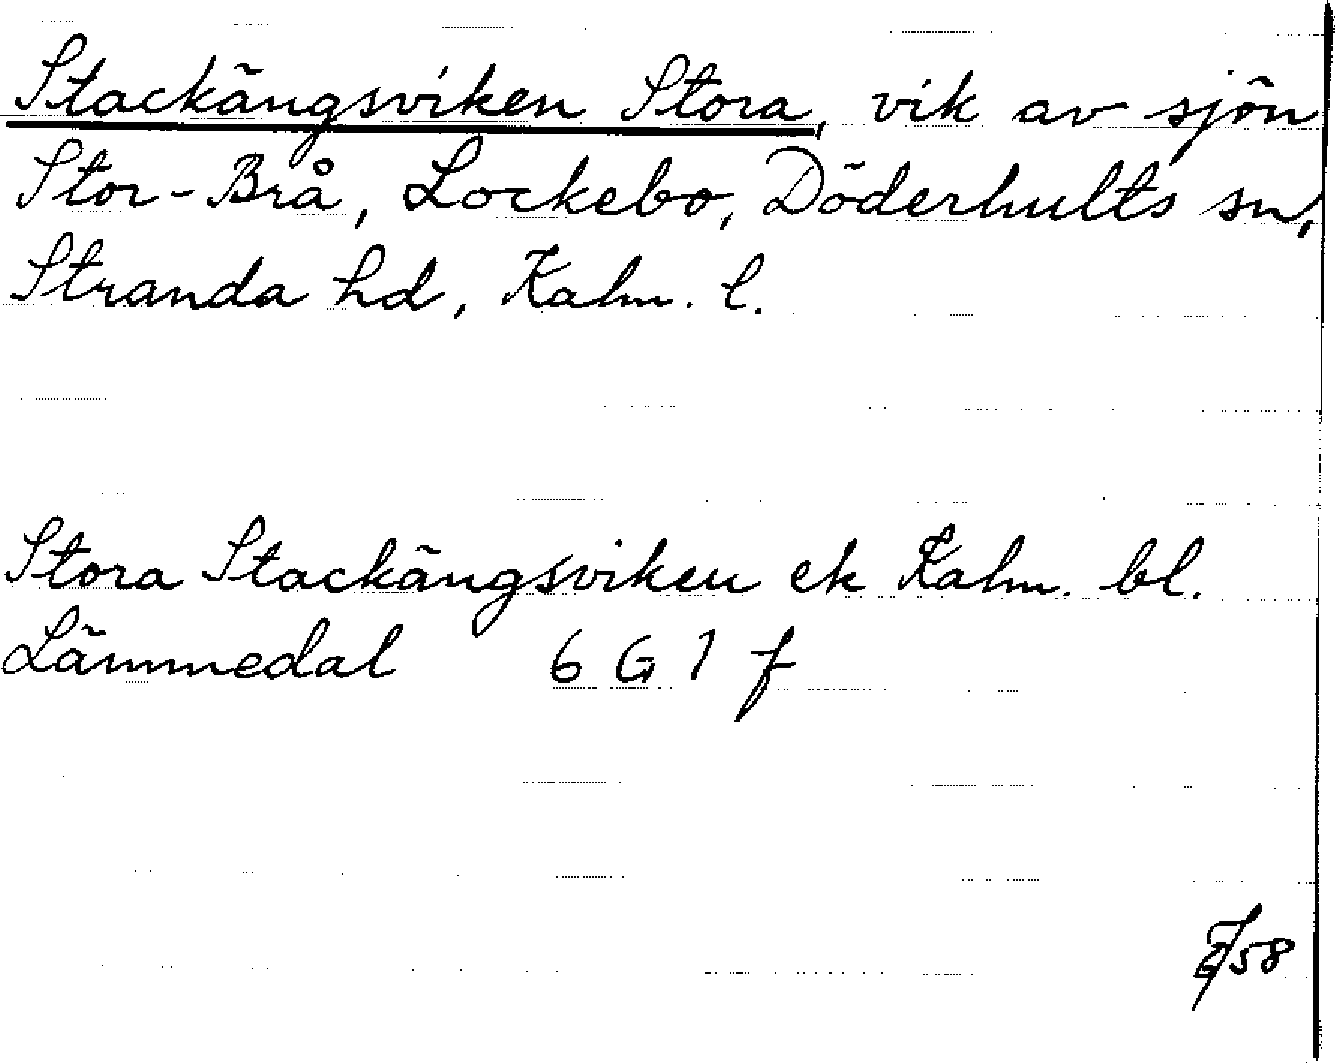 Stackängsviken Stora, vik av sjön
Stor-Brå, Lockebo, Döderhults sn,
Stranda hd, Kalm. l.
Stora Stackängsviken ek Kalm. bl.
Lämmedal 6 G 1 f
58